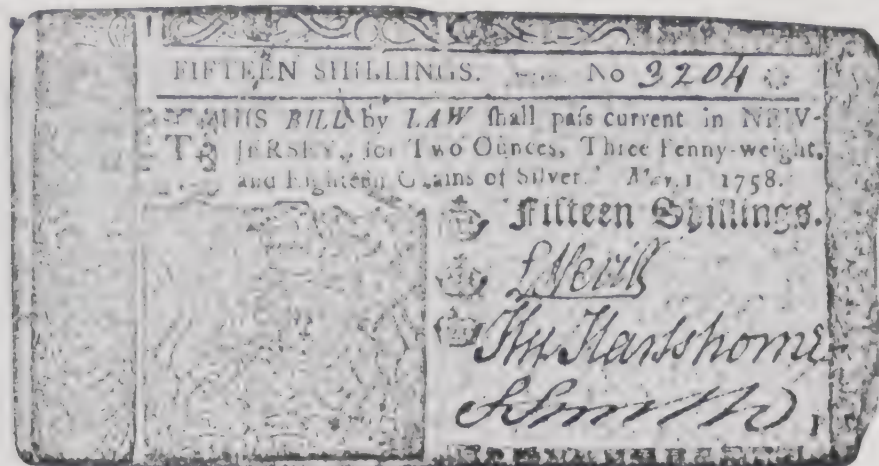 FIFTEEN SHILLINGS. No 3204
THIS BILL by LAW ſhall paſs current in NEW-
JERSEY, for Two Ounces, Three Penny-weight,
and Eighteen Grains of Silver. May 1 1758.
Fifteen Shillings.
S Nevill
Hartshorne
S Smith